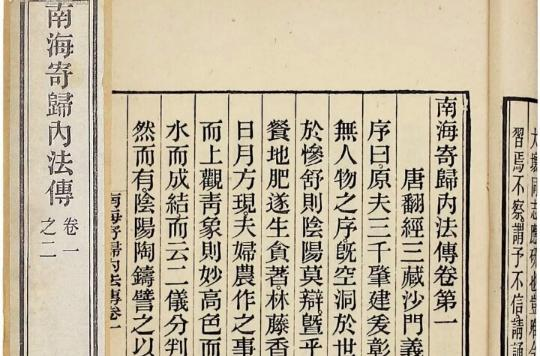 南海寄歸内法傳 卷一之二
南海寄歸内法傳卷第一
唐翻經三藏沙門義
序曰原夫三千肇建爰彰
無人物之序旣空洞於世
於慘舒則陰陽莫辯曁乎
餐地肥遂生貪著林藤香
日月方現夫婦農作之事
而上觀青象則妙高色而
水而成結而云二儀分判
然而有陰陽陶鑄譬之以
南海寄歸内法傳卷一
習焉不察謂予不信請誦